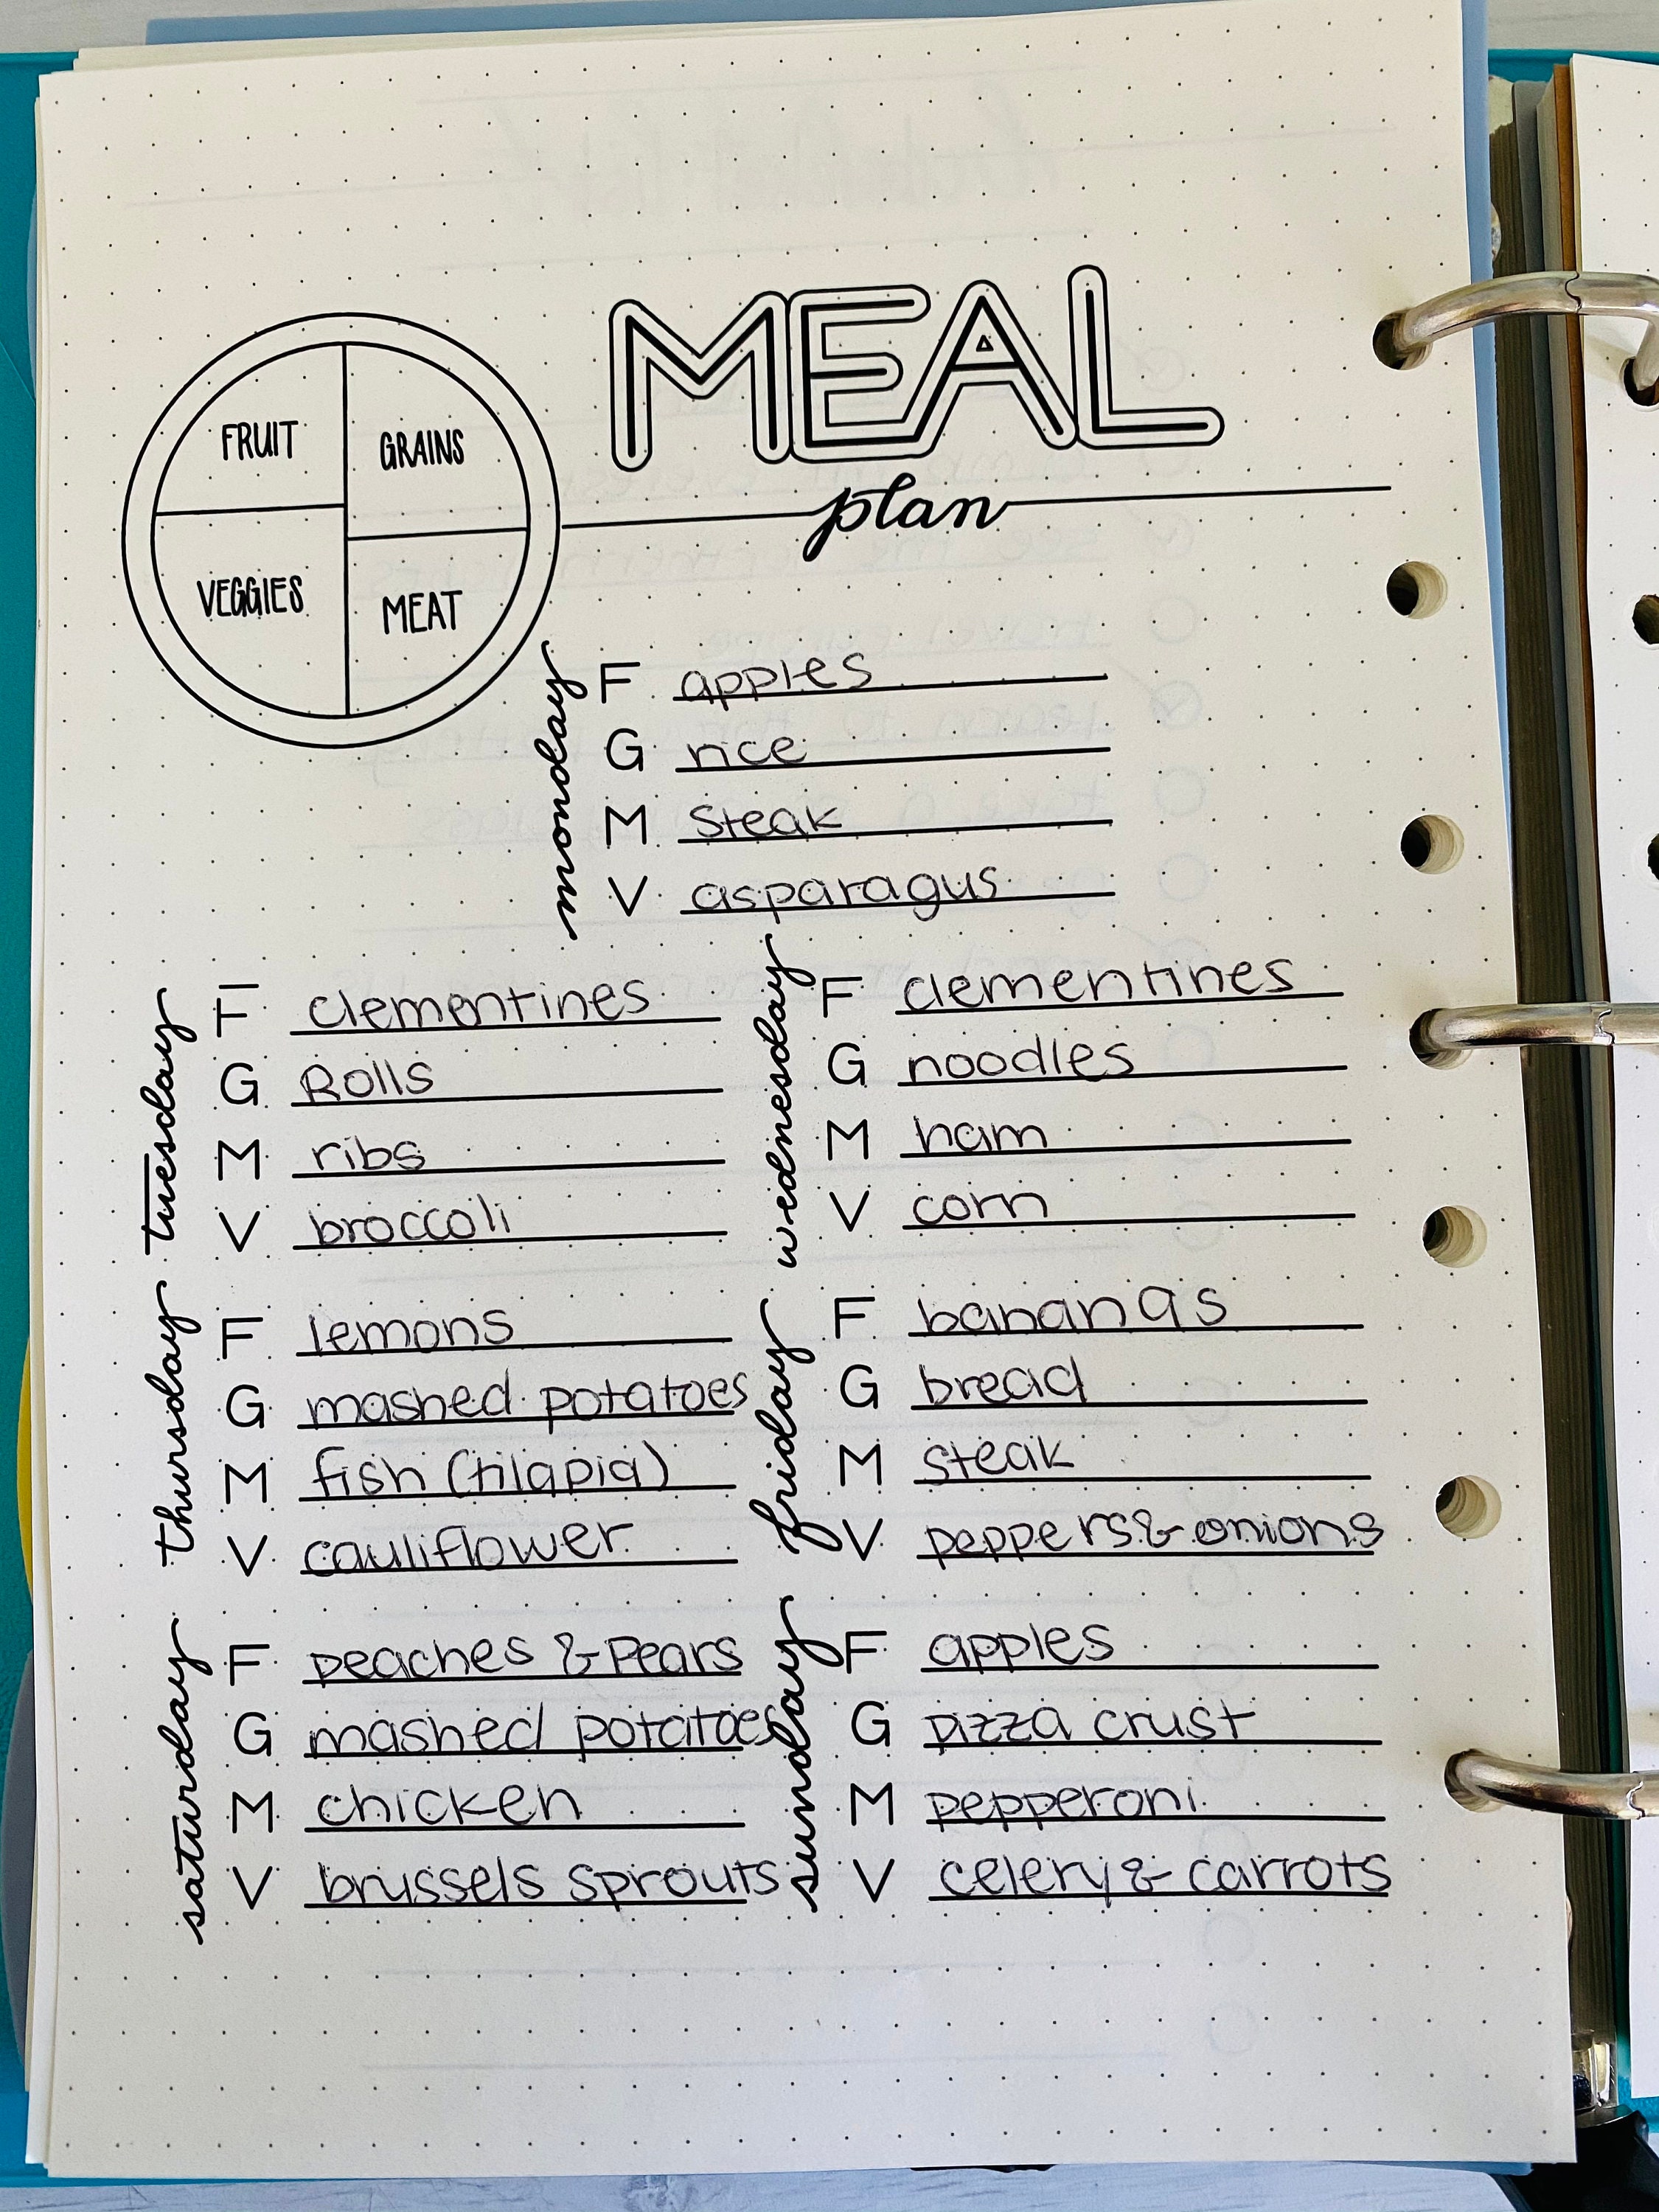 MEAL
plan
FRUIT
GRAINS
VEGGIES
MEAT
monday
F apples
G rice
M steak
V asparagus
tuesday
F clementines
G Rolls
M ribs
V broccoli
wednesday
F clementines
G noodles
M ham
V corn
thursday
F lemons
G mashed potatoes
M fish (tilapia)
V cauliflower
friday
F bananas
G bread
M steak
V peppers & onions
saturday
F peaches & Pears
G mashed potatoes
M chicken
V brussels sprouts
sunday
F apples
G pizza crust
M pepperoni
V celery & carrots